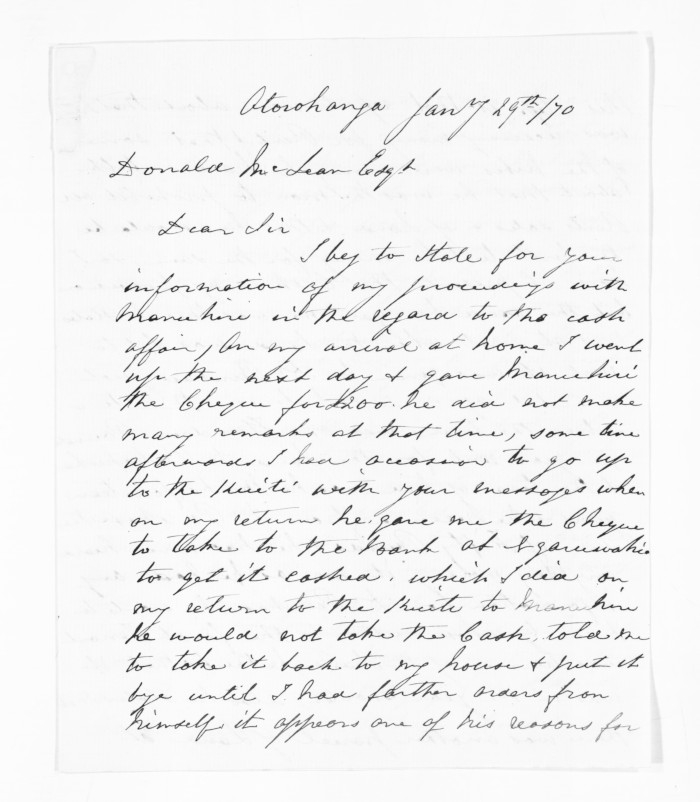 Otorohanga Jany 29th/70
Donald McLean Esqr
Dear Sir
I beg to State for your
information of my proceedings with
Manuhiri in the regard to the cash
affair, On my arrival at home I went
up the next day & gave Manuhiri
the Cheque for £200. he did not make
many remarks at that time, some time
afterwards I had occasion to go up
to the Kuiti with your messages when
on my return he gave me the Cheque
to take to the Bank at Ngaruwahia
to get it cashed. which I did on
my return to the Kuiti to Manuhiri
he would not take the Cash, told me
to take it back to my house & put it
bye until I had farther orders from
himself. it appears one of his reasons for